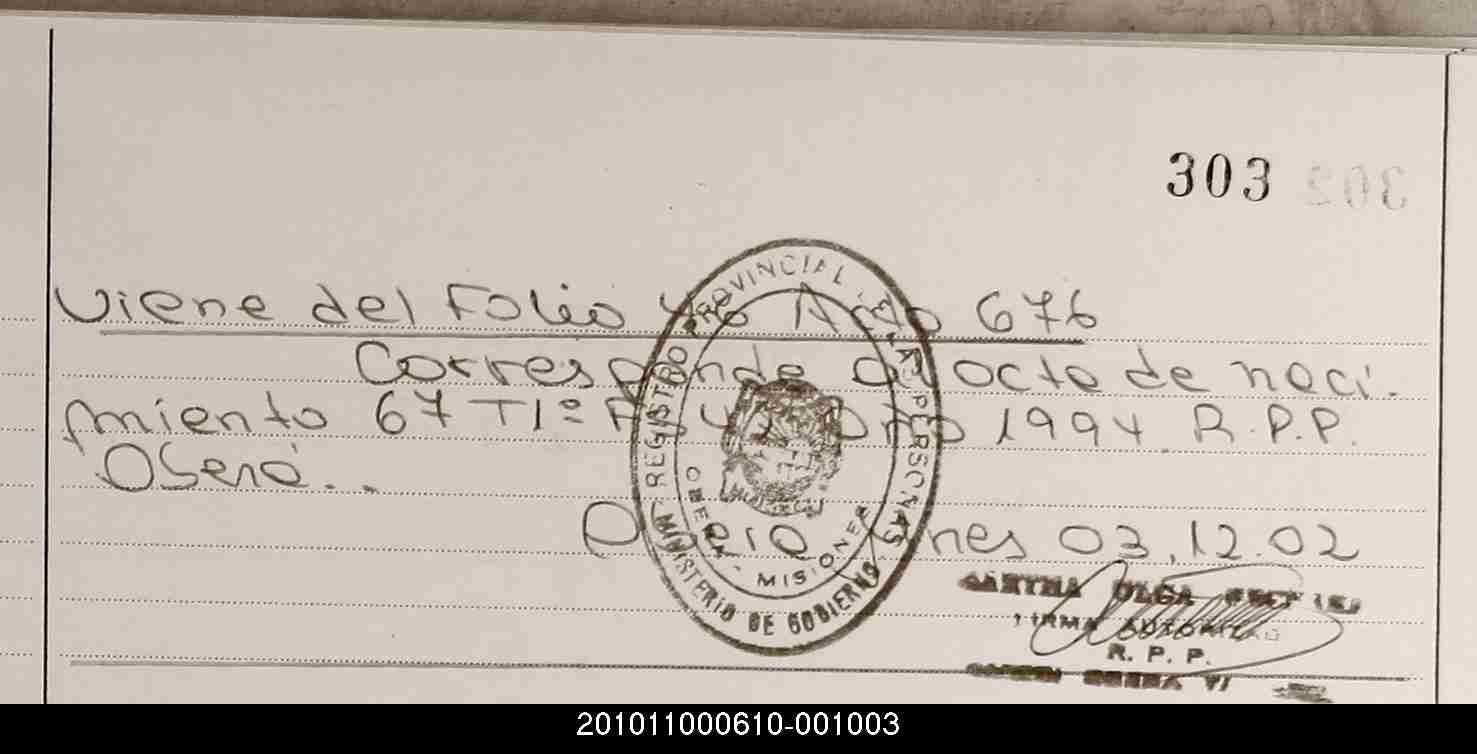 303
Viene del Folio Acta 676
Corresponde al acta de naci-
miento 67 Tº 1994 R.P.P.
Oberá..
Oberá Mnes 03.12.02
REGISTRO PROVINCIAL DE LAS PERSONAS
MINISTERIO DE GOBIERNO
OBERA - MISIONES
OLGA
FIRMA AUTORIZADA
R. P. P.
201011000610-001003